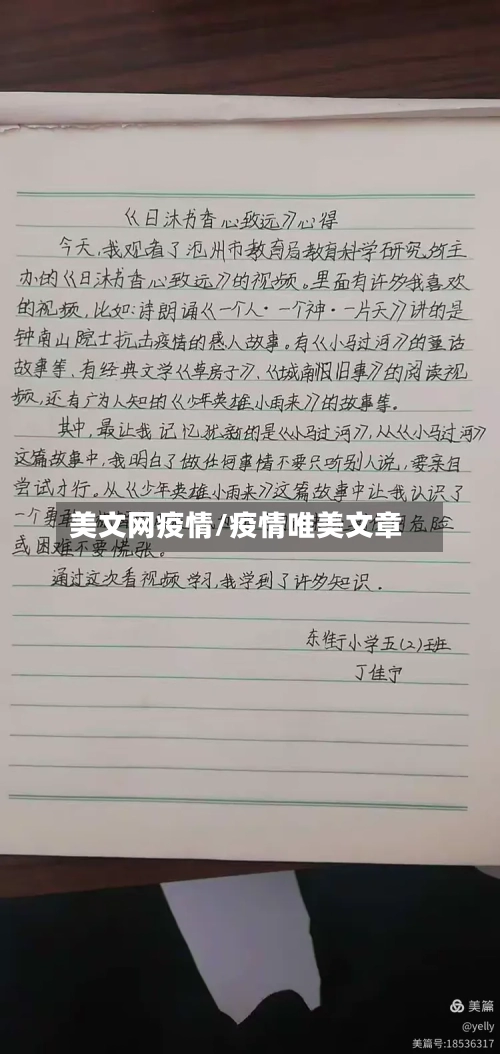 《日沐书香心致远》心得
今天,我观看了沧州市教育局教育科学研究所主
办的《日沐书香心致远》的视频。里面有许多我喜欢
的视频,比如:诗朗诵《一个人·一个神·一片天》讲的是
钟南山院士抗击疫情的感人故事。有《小马过河》的童话
故事等,有经典文学《草房子》、《城南旧旧事》的阅读视
频,还有广为人知的《少年英雄小雨来》的故事等。
其中,最让我记忆犹新的是《小马过河》,从《小马过河》
这篇故事中,我明白了做任何事情不要只听别人说,要亲自
尝试才行。从《少年英雄小雨来》这篇故事中让我认识了
一个勇敢
的危险
美文网疫情/疫情唯美文章
或困难不要慌张。
通过这次看视频学习,我学到了许多知识.
东街小学五(2)班
丁佳宁
美篇
@yelly
美篇号:18536317